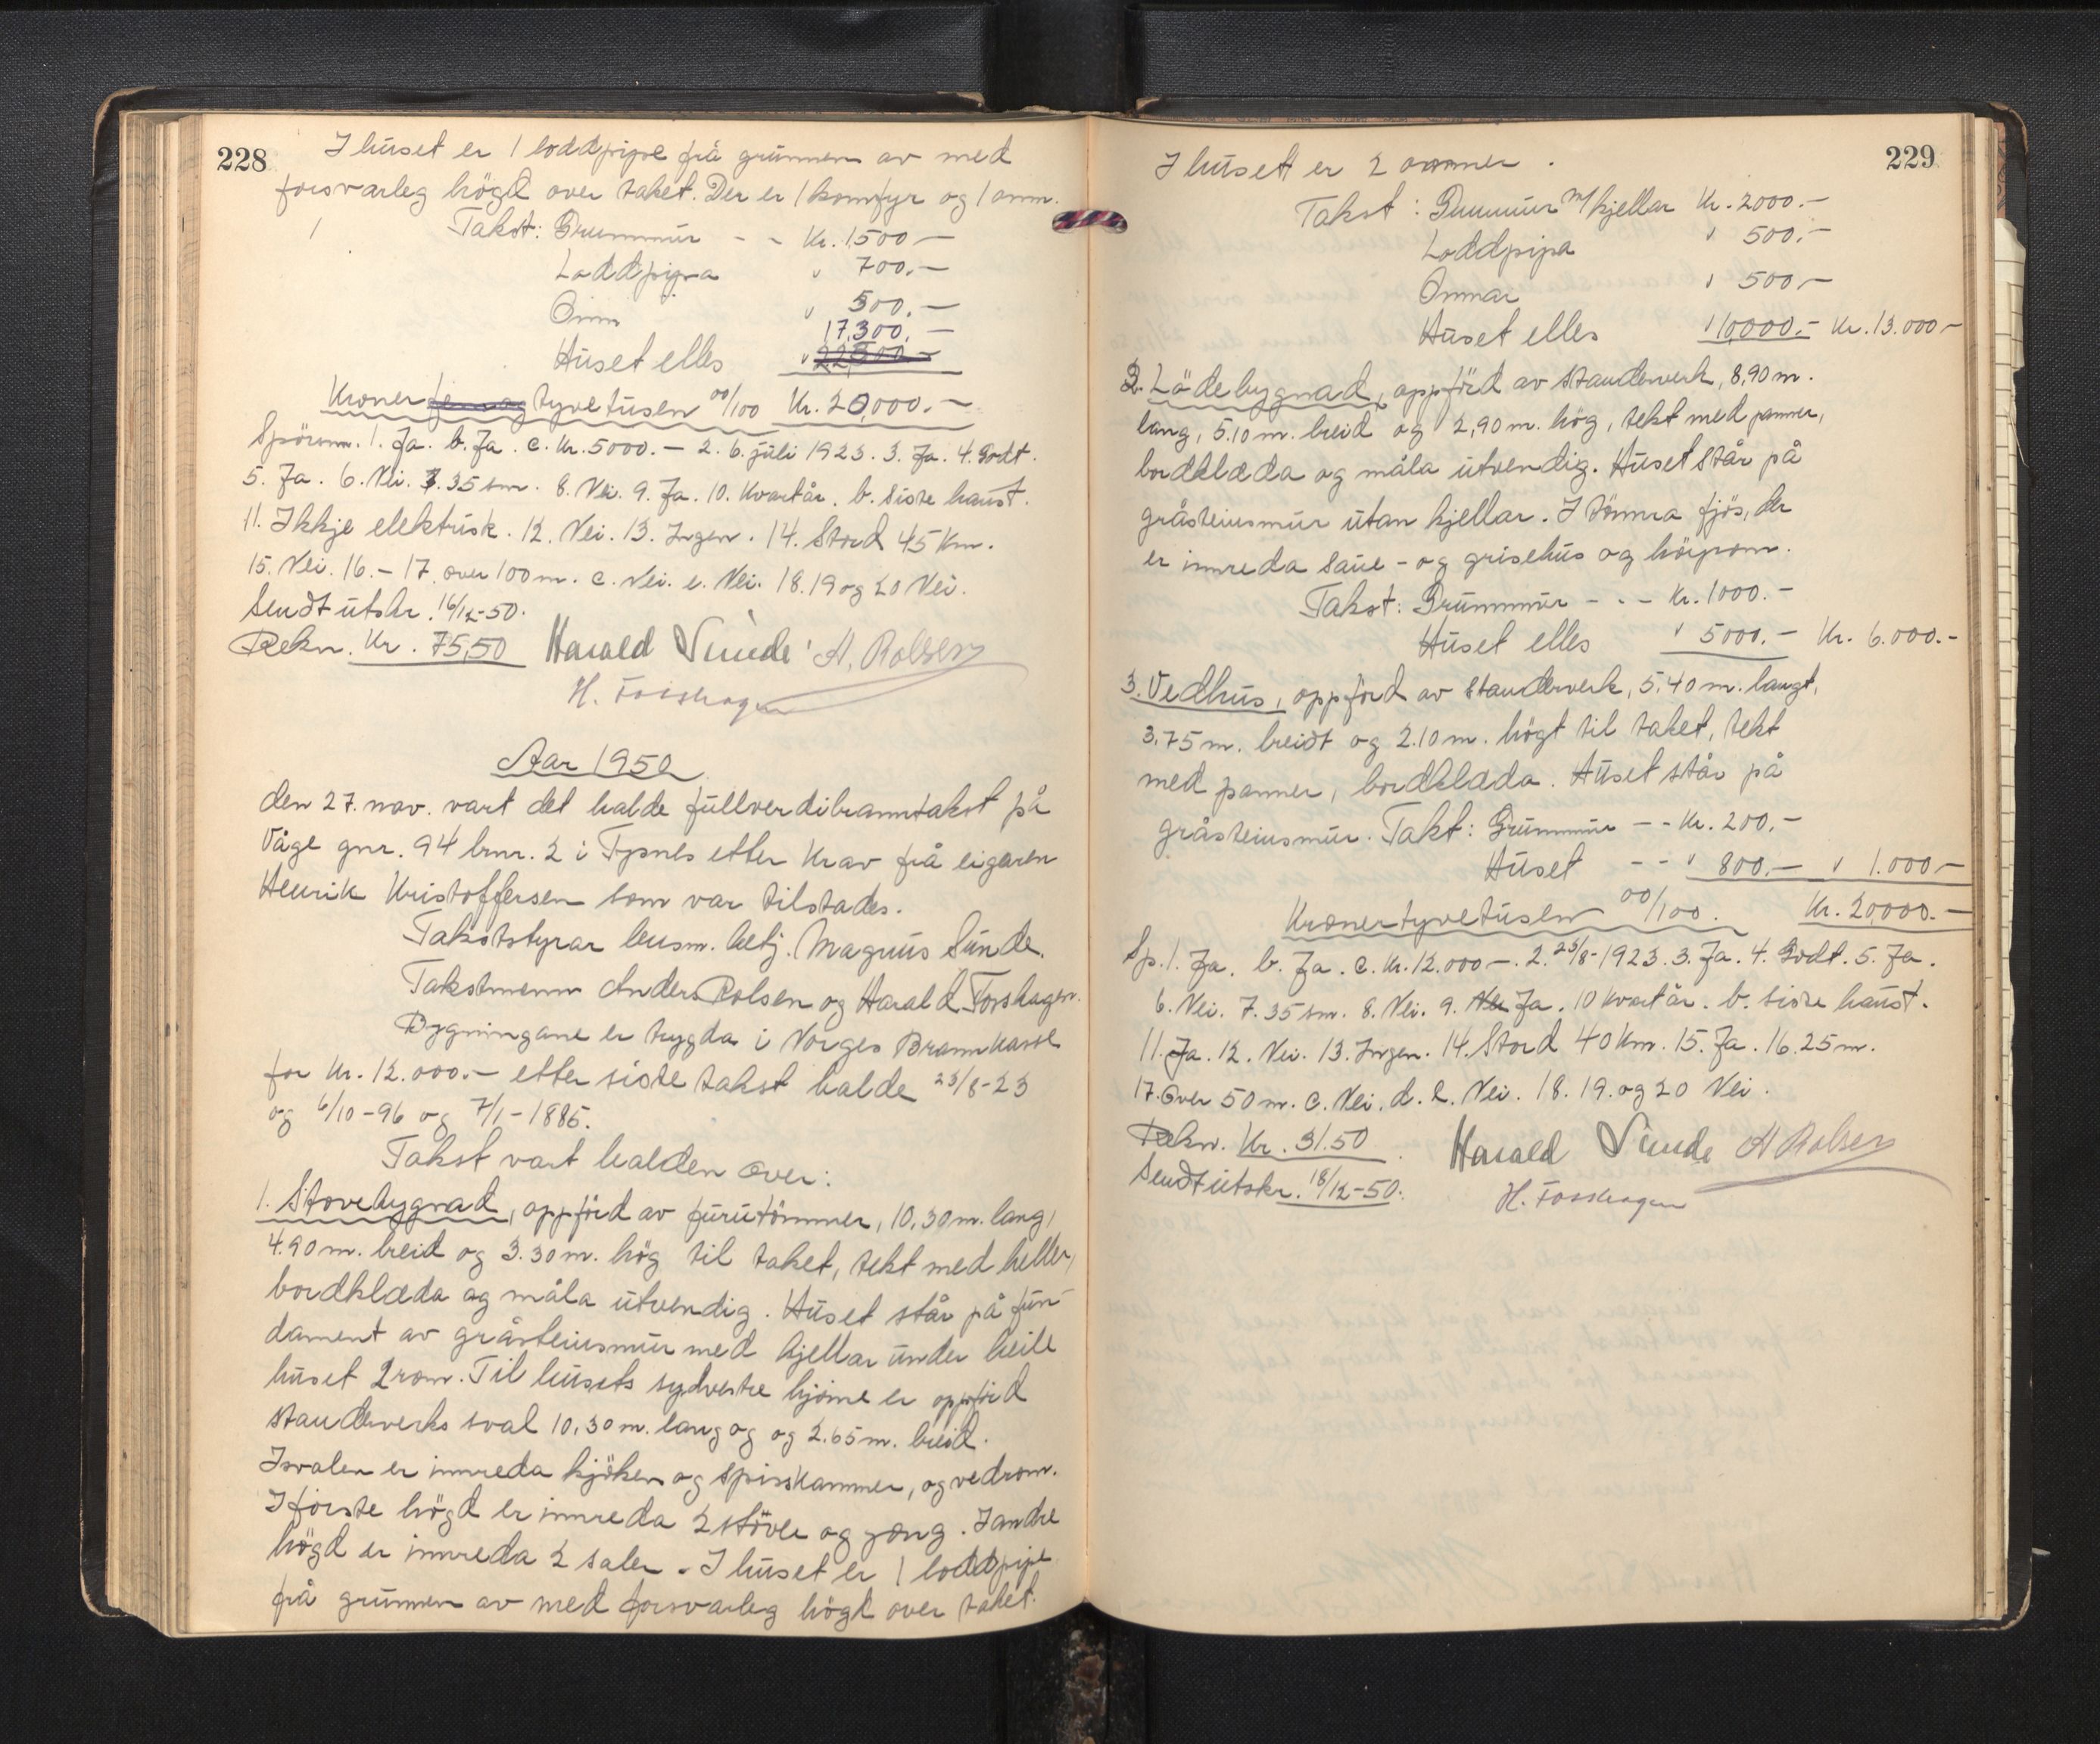 228
I huset er 1 loddpipe frå grunnen av med
forsvarleg högd over taket. Der er 1 komfyr og 1 omn.
Takst: Grunnmur - - Kr. 1500.-
Loddpipa " 700.-
Omn " 500.-
17.300.-
Huset elles "
Kroner tyvetusen 00/100 Kr. 20,000.-
Spörsm. 1. Ja. b. Ja. c. Kr. 5000.- 2. 6. juli 1923. 3. Ja. 4. Godt.
5. Ja. 6. Nei. 7. 35 sm. 8. Nei. 9. Ja. 10. Kvartår. b. siste haust.
11. Ikkje elektrisk. 12. Nei. 13. Ingen. 14. Stord 45 Km.
15. Nei. 16. - 17. over 100 m. c. Nei. e. Nei. 18. 19 og 20 Nei.
Sendt utskr. 16/12-50.
Rekn. Kr. 75,50 Harald Sunde A. Rolsen
H. Fosshagen
Aar 1950
den 27. nov. vart det halde fullverdibranntakst på
Våge gnr. 94 brnr. 2 i Tysnes etter Krav frå eigaren
Henrik Kristoffersen som var tilstades.
Takststyrar lensm. betj. Magnus Sunde.
Takstmenn Anders Rolsen og Harald Fosshagen.
Bygningane er trygda i Norges Brannkasse
for Kr. 12.000.- etter siste takst halde 23/8-23
og 6/10-96 og 7/1-1885.
Takst vart halden over:
1. Stovebygnad, oppförd av furutömmer, 10,30 m. lang,
4.90 m. breid og 3.30 m. hög til taket, tekt med heller,
bordklæda og måla utvendig. Huset står på fun-
dament av gråsteinsmur med kjellar under heile
huset 2 rom. Til husets sydvestre hjörne er oppförd
standerverks sval 10,30 m. lang og og 2.65 m. breid.
I svalen er innreda kjöken og spisskammer, og vedrom.
I förste högd er innreda 2 stöver og gang. I andre
högd er innreda 2 saler. I huset er 1 loddpipe
frå grunnen av med forsvarleg högd over taket.
229
I huset er 2 omner.
Takst: Grunnmur m/kjellar Kr. 2000.-
Loddpipa " 500.-
Omnar " 500.-
Huset elles " 10000.- Kr. 13.000-
2. Lödebygnad, oppförd av standerverk, 8,90 m.
lang, 5.10 m. breid og 2,90 m. hög, tekt med panner,
bordklæda og måla utvendig. Huset står på
gråsteinsmur utan kjellar. I tömra fjös, der
er innreda saue - og grisehus og höyrom.
Takst: Grunnmur - . - Kr. 1000.-
Huset elles " 5000.- Kr. 6.000.-
3. Vedhus, oppförd av standerverk, 5.40 m. langt,
3.75 m. breidt og 2.10 m. högt til taket, tekt
med panner, bordklæda. Huset står på
gråsteinsmur. Takt: Grunnmur - - Kr. 200.-
Huset - - " 800.- " 1.000-
Kroner tyvetusen 00/100. Kr. 20,000.-
Sp. 1. Ja. b. Ja. c. Kr. 12.000-. 2. 23/8-1923. 3. Ja. 4. Godt. 5. Ja.
6. Nei. 7. 35 sm. 8. Nei. 9. Nei Ja. 10 Kvartår. b. siste haust.
11. Ja. 12. Nei. 13. Ingen. 14. Stord 40 Km. 15. Ja. 16. 25 m.
17. Over 50 m. c. Nei. d. e. Nei. 18. 19. og 20 Nei.
Rekn. Kr. 31.50 Harald Sunde A Rolsen
Sendt utskr. 18/12-50. H. Fosshagen